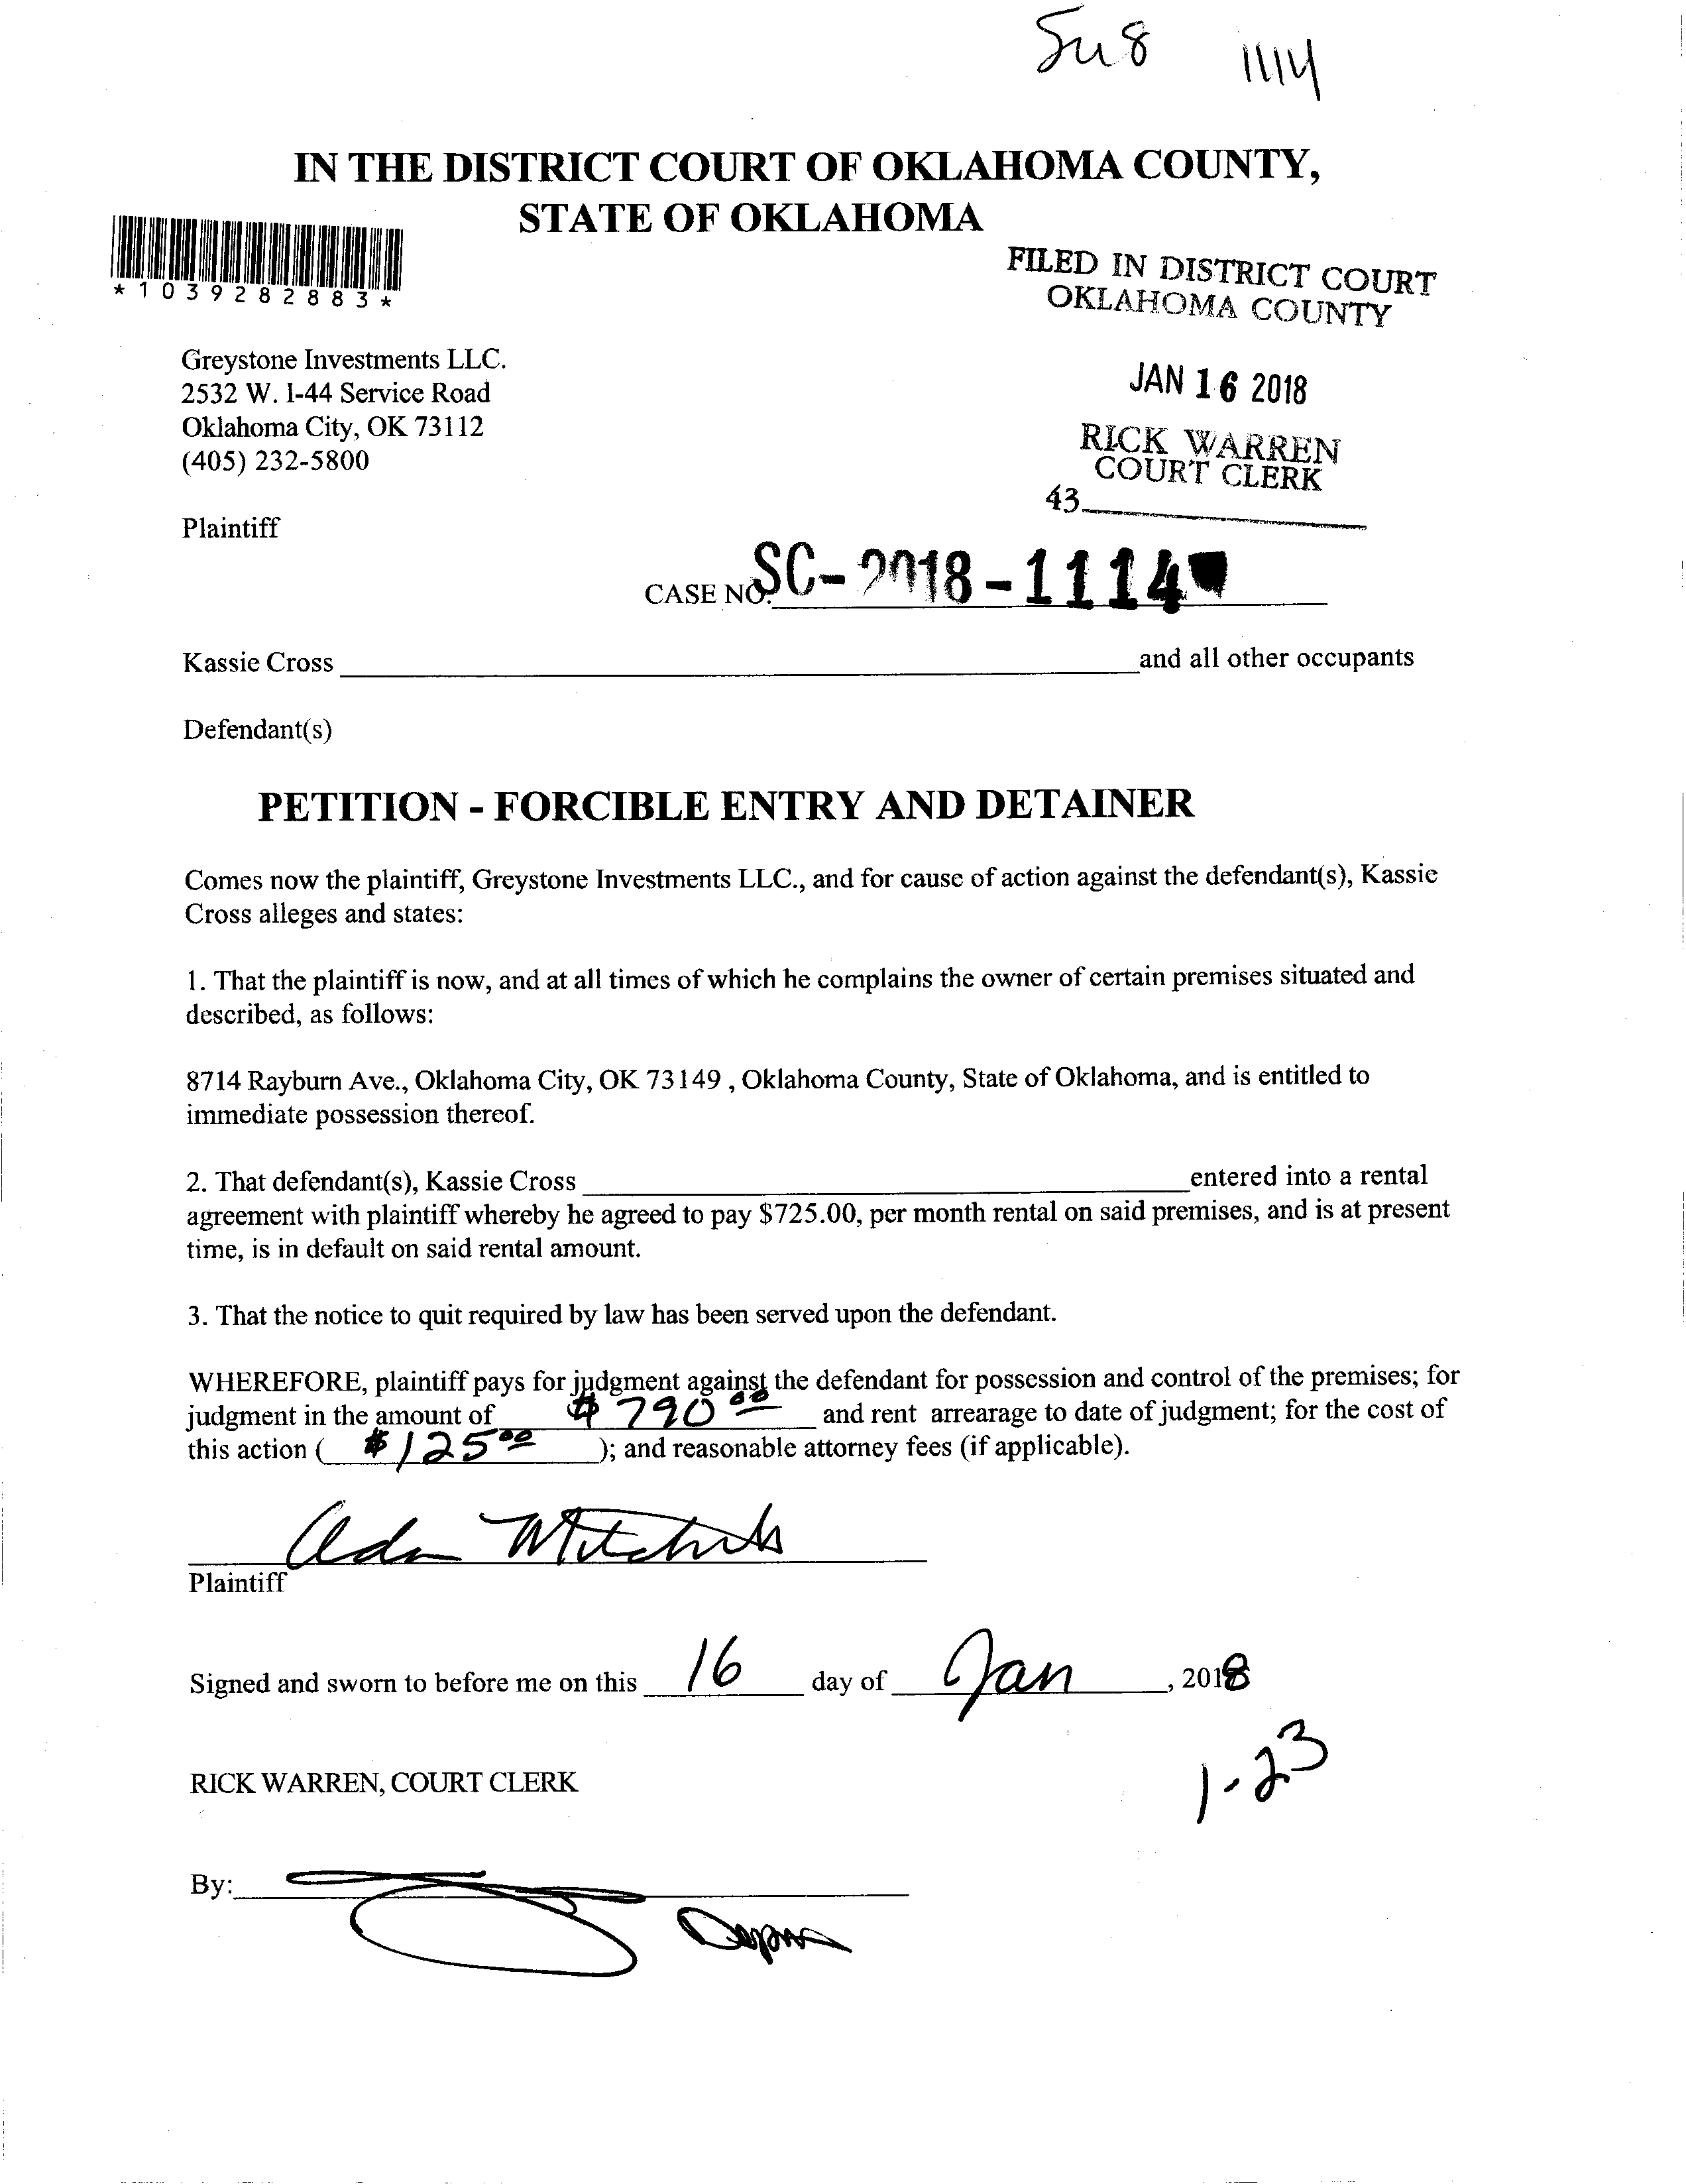 1114
IN THE DISTRICT COURT OF OKLAHOMA COUNTY,
STATE OF OKLAHOMA
*1039282883*
FILED IN DISTRICT COURT
OKLAHOMA COUNTY
Greystone Investments LLC.
2532 W. I-44 Service Road
Oklahoma City, OK 73112
(405) 232-5800
JAN 16 2018
RICK WARREN
COURT CLERK
43
Plaintiff
CASE NO. SC-2018-1114
Kassie Cross and all other occupants
Defendant(s)
PETITION - FORCIBLE ENTRY AND DETAINER
Comes now the plaintiff, Greystone Investments LLC., and for cause of action against the defendant(s), Kassie
Cross alleges and states:
1. That the plaintiff is now, and at all times of which he complains the owner of certain premises situated and
described, as follows:
8714 Rayburn Ave., Oklahoma City, OK 73149 , Oklahoma County, State of Oklahoma, and is entitled to
immediate possession thereof.
2. That defendant(s), Kassie Cross entered into a rental
agreement with plaintiff whereby he agreed to pay $725.00, per month rental on said premises, and is at present
time, is in default on said rental amount.
3. That the notice to quit required by law has been served upon the defendant.
WHEREFORE, plaintiff pays for judgment against the defendant for possession and control of the premises; for
judgment in the amount of $790 00 and rent arrearage to date of judgment; for the cost of
this action ( $125 00 ); and reasonable attorney fees (if applicable).
Plaintiff
Signed and sworn to before me on this 16 day of Jan , 2018
1-23
RICK WARREN, COURT CLERK
By: